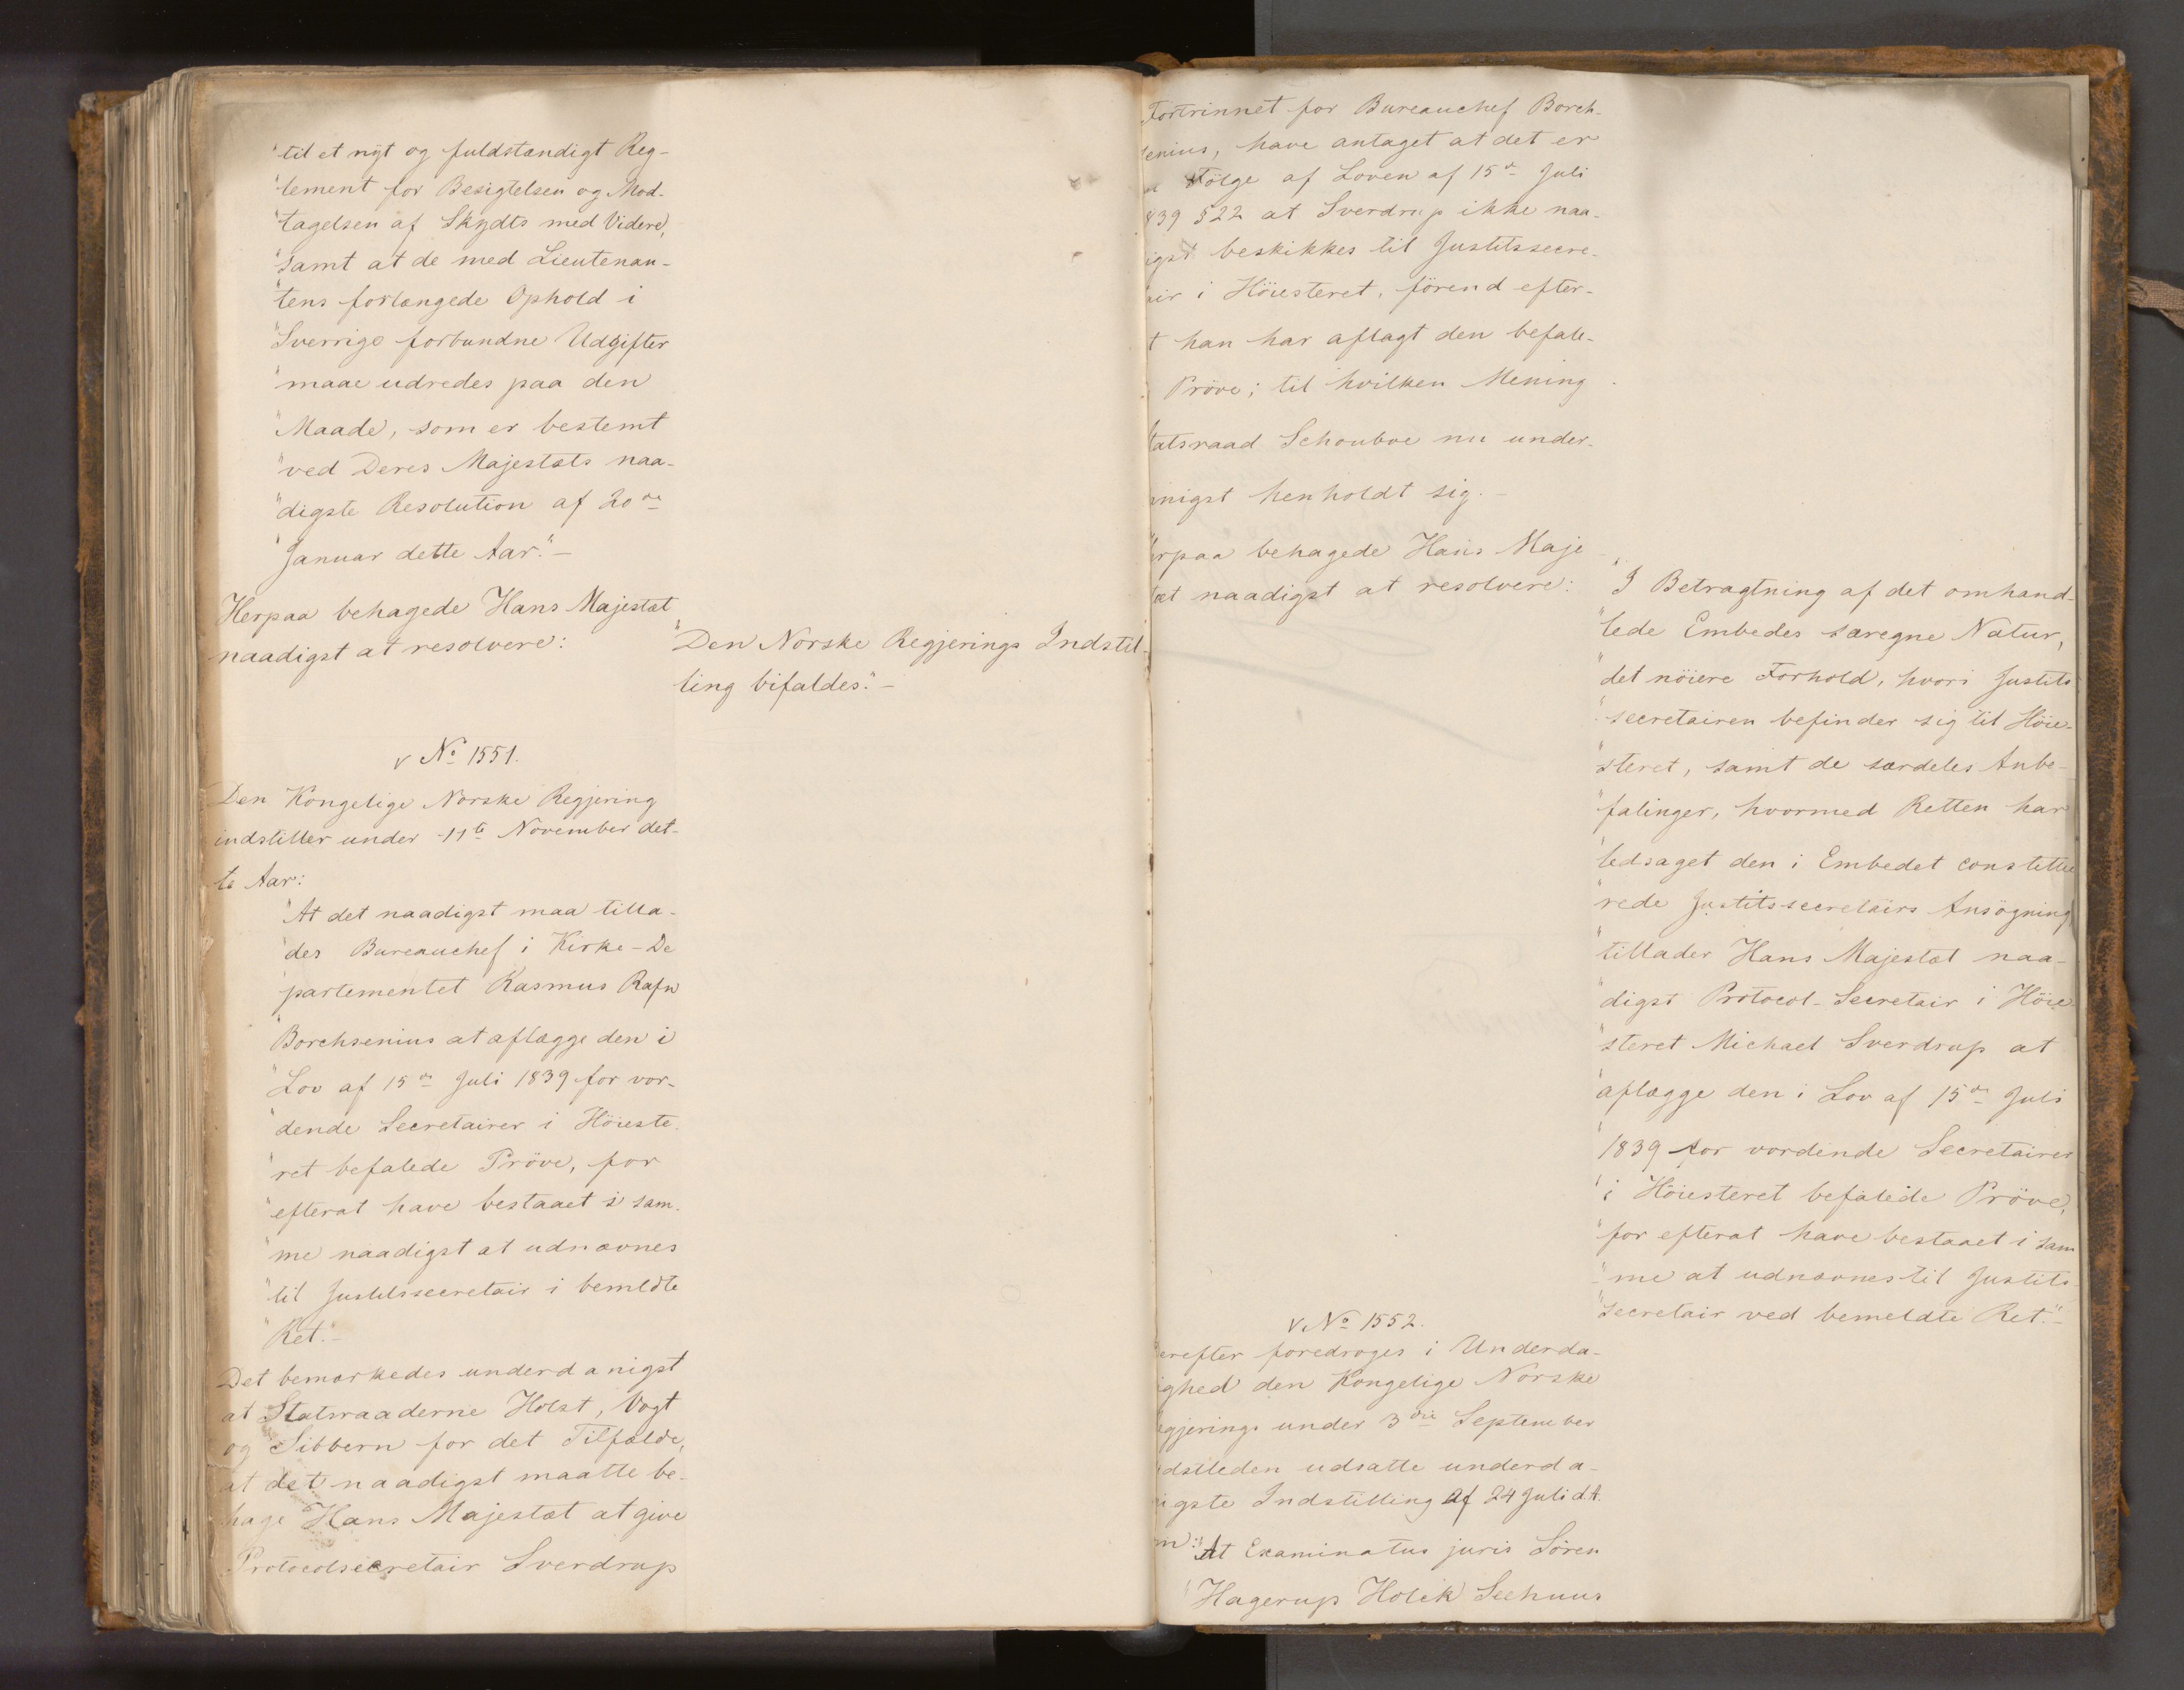 "til et nyt og fuldstændigt Reg-
"lement for Besigtelsen og Mod-
"tagelsen af Skydts med Videre,
"samt at de med Lieutenan-
"tens forlængede Ophold i
"Sverrige forbundne Udgifter
"maae udredes paa den
"Maade, som er bestemt
"ved Deres Majestæts naa-
"digste Resolution af 20de
"Januar dette Aar."-
Herpaa behagede Hans Majestæt
naadigst at resolvere:
"Den Norske Regjerings Indstil-
ling bifaldes."-
v No 1551.
Den Kongelige Norske Regjering
indstiller under 11te November det-
te Aar:
"At det naadigst maa tilla-
"des Bureauchef i Kirke-De
"partementet Rasmus Rafn
"Borchsenius at aflægge den i
"Lov af 15de Juli 1839 for vor-
"dende Secretairer i Høieste-
"ret befalede Prøve, for
"efterat have bestaaet i sam-
"me naadigst at udnævnes
"til Justitssecretair i bemeldte
"Ret.-
Det bemærkedes underdanigst
at Statsraaderne Holst, Vogt
og Sibbern for det Tilfælde,
at det naadigst maatte be-
hage Hans Majestæt at give
Protocolsecretair Sverdrup
Fortrinnet for Bureauchef Borch-
senius, have antaget at det er
en Følge af Loven af 15de Juli
1839 §22 at Sverdrup ikke naa-
digst beskikkes til Justitssecre-
tair i Høiesteret, førend efter-
at han har aflagt den befale-
Prøve; til hvilken Mening
Statsraad Schouboe nu under-
danigst henholdt sig.-
Herpaa behagede Hans Maje-
stæt naadigst at resolvere:
"I Betragtning af det omhand-
"lede Embedes særegne Natur,
"det nöiere Forhold, hvori Justits
"secretairen befinder sig til Höie-
"steret, samt de særdeles Anbe-
"falinger, hvormed Retten har
"ledsaget den i Embedet constitue
"rede Justitssecretairs Ansögning,
"tillader Hans Majestæt naa-
"digst Protocol-Secretair i Höie
"steret Michael Sverdrup at
"aflægge den i Lov af 15de Juli
"1839 for vordende Secretairer
"i Höiesteret befalede Pröve,
"for efterat have bestaaet i sam
"me at udnævnes til Justits-
"secretair ved bemeldte Ret."-
v No 1552.
Derefter foredroges i Underda-
nighed den Kongelige Norske
Regjerings under 3die September
sidstleden udsatte underda-
nigste Indstilling af 24 Juli d.A.
om: "At Examinatus juris Sören
"Hagerup Holck Seehuus